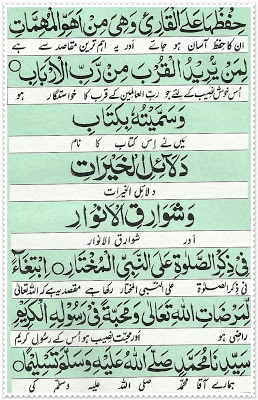 حِفْظُهَا عَلَى الْقَارِئِ وَهِيَ مِنْ اَهَمِّ الْمُهِمَّاتِ
ان کا حفظ آسان ہو جائے اور یہ اہم ترین مقاصد سے ہے
لِمَنْ يُّرِيْدُ الْقُرْبَ مِنْ رَّبِّ الْاَرْبَابِ
اُس خوش نصیب کے لئے جو ربّ العالمین کے قرب کا خواستگار ہو
وَسَمَّيْتُهٗ بِكِتَابِ
میں نے اس کتاب کا نام
دَلَائِلُ الْخَيْرَات
دلائل الخیرات
وَشَوَارِقِ الْاَنْوَار
اور شوارق الانوار
فِيْ ذِكْرِ الصَّلٰوةِ عَلَى النَّبِيِّ الْمُخْتَارِ اِبْتِغَآءً
فی ذکر الصلوٰۃ علی النبی المختار رکھا ہے مقصد یہ ہے کہ اللہ تعالیٰ
لِّمَرْضَاتِ اللهِ تَعَالٰى وَمَحَبَّةً فِيْ رَسُوْلِهِ الْكَرِيْمِ
راضی ہو اور محبت نصیب ہو اُس کے رسول کریم
سَيِّدِنَا مُحَمَّدٍ صَلَّى اللهُ عَلَيْهِ وَسَلَّمَ تَسْلِيْمًا
ہمارے آقا محمد صلی اللہ علیہ وسلم کی